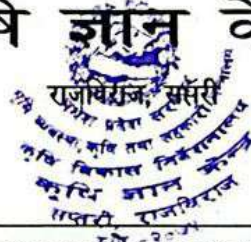 षि ज्ञान के
राजविराज, सप्तरी
प्रदेश
व्यवस्था, कृषि तथा सहकारी
कृषि विकास निर्देशनालय
कृषि ज्ञान केन्द्र
सप्तरी, राजविराज